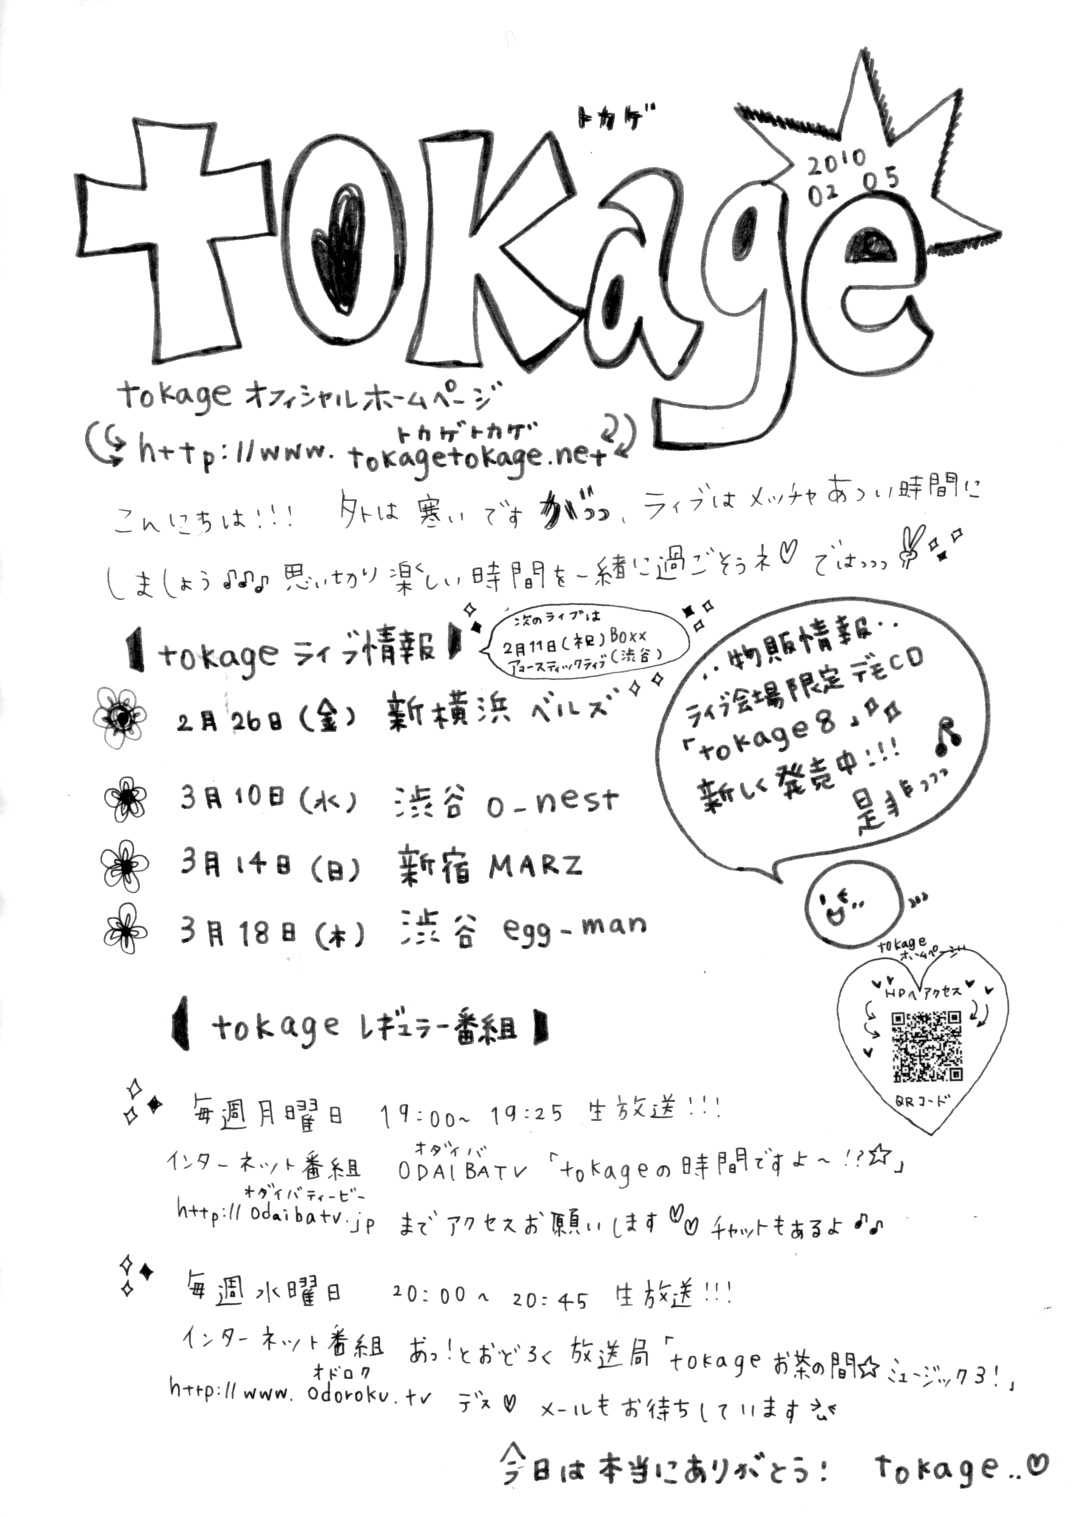 トカゲ
tokage
2010
02 05
tokage オフィシャルホームページ
トカゲトカゲ
http://www.tokagetokage.net
こんにちは!!! 外は寒いですがっっ、ライブはメッチャあつい時間に
しましょう♪♪♪ 思い切り楽しい時間を一緒に過ごそうネ♡ ではっっっ
【tokage ライブ情報】
次のライブは
2月11日(祝) Boxx
アコースティックライブ(渋谷)
2月26日(金) 新横浜 ベルズ
3月10日(水) 渋谷 o-nest
3月14日(日) 新宿 MARZ
3月18日(木) 渋谷 egg-man
‥物販情報‥
ライブ会場限定デモCD
「tokage8」
新しく発売中!!!
是非っっっ
tokage
ホームページ
HPへアクセス
QRコード
【tokage レギュラー番組】
毎週月曜日 19:00~19:25 生放送!!!
オダイバ
インターネット番組 ODAIBATV 「tokageの時間ですよ~!?☆」
オダイバティービー
http://odaibatv.jp までアクセスお願いします♡♡ チャットもあるよ♪♪
毎週水曜日 20:00~20:45 生放送!!!
インターネット番組 あっ!とおどろく放送局「tokage お茶の間☆ミュージック3!」
オドロク
http://www.odoroku.tv デス♡ メールもお待ちしています
今日は本当にありがとう! tokage‥♡